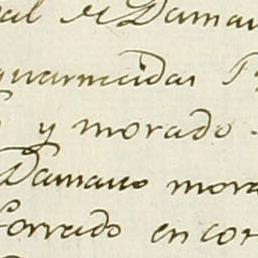 Damas
guarnecidas
y morado
Damasco mora
forrado en cor